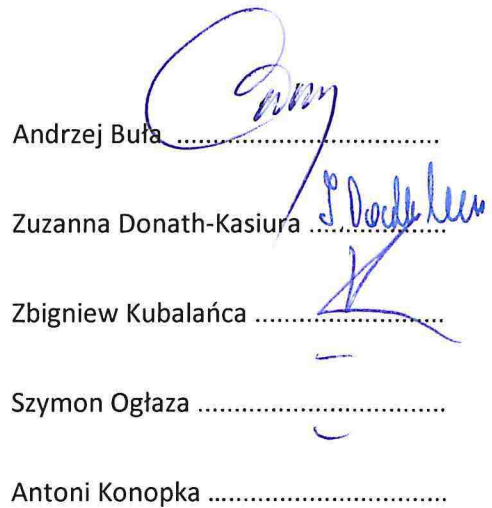 Andrzej Buła ....................................
Zuzanna Donath-Kasiura ......................
Zbigniew Kubalańca ..............................
–
Szymon Ogłaza .......................................
–
Antoni Konopka .....................................